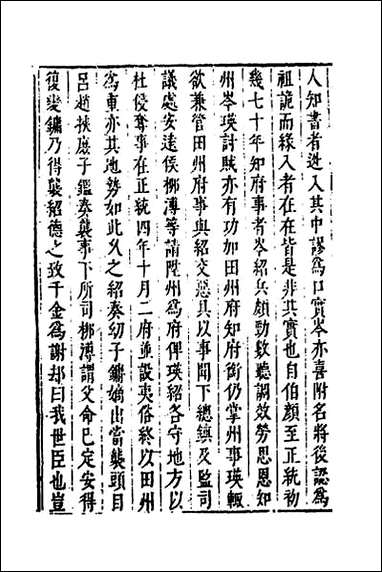 人知書者迯入其中謬為口實岑亦喜附名將後認為
祖詭而緣入者在在皆是非其實也自伯顏至正統初
幾七十年知府事者岑紹兵頗勁數聽調效勞思恩知
州岑瑛討賊亦有功加田州府知府銜仍掌州事瑛輒
欲兼管田州府事與紹交惡具以事聞下總鎮及監司
議處安遠侯栁溥等請陞州為府俾瑛紹各守地方以
杜侵奪事在正統四年十月二府並設夷俗終以田州
為重亦其地勢如此久之紹奏幼子鏞始出當襲頭目
呂趙挾庶子鑑奏襲事下所司栁溥謂父命已定安得
復變鏞乃得襲紹德之致千金為謝却曰我世臣也豈